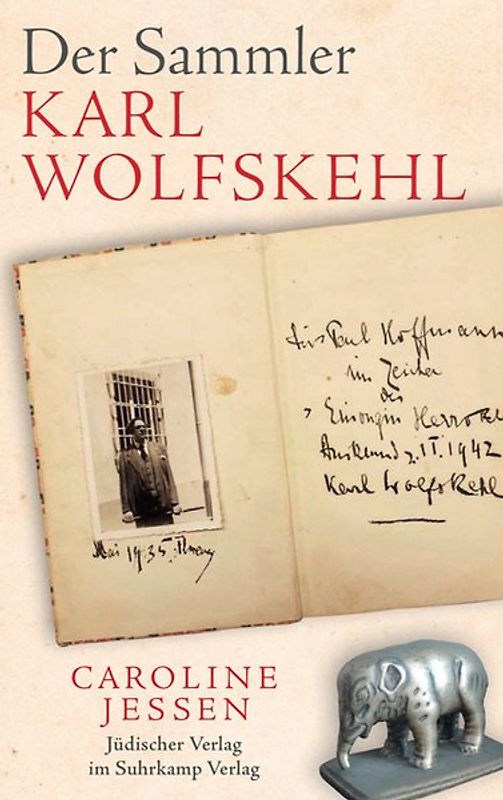 Der Sammler
KARL
WOLFSKEHL
Paul Hoffmann
im Zeichen
des
1942
Karl Wolfskehl
Mai 1935
CAROLINE
JESSEN
Jüdischer Verlag
im Suhrkamp Verlag